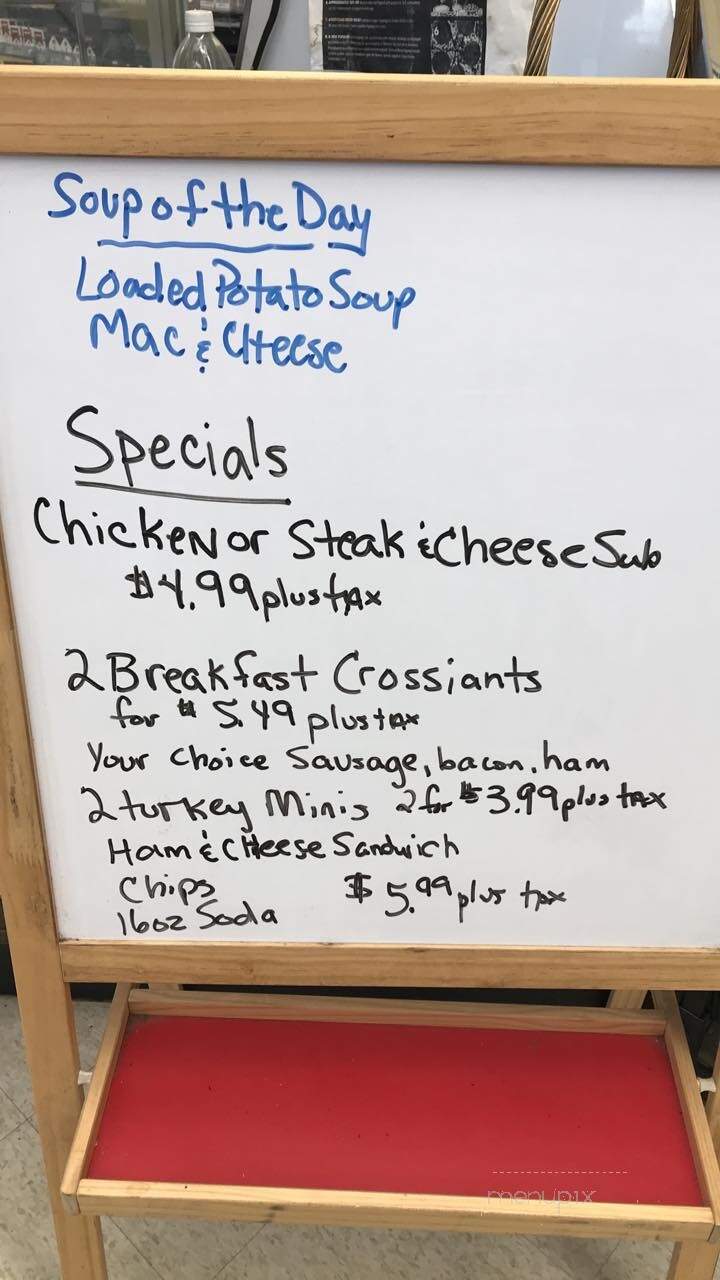 Soup of the Day
Loaded Potato Soup
Mac & Cheese
Specials
Chicken or Steak & Cheese Sub
$4.99 plus tax
2 Breakfast Crossiants
for $5.49 plus tax
Your Choice Sausage, bacon, ham
2 turkey Minis 2 for $3.99 plus tax
Ham & Cheese Sandwich
Chips $5.99 plus tax
16oz Soda
menupix